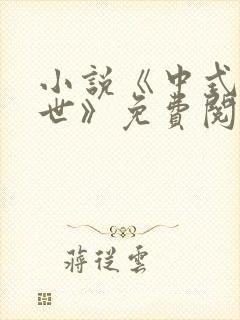 小說《中式
世》免費閱
蔣從雲